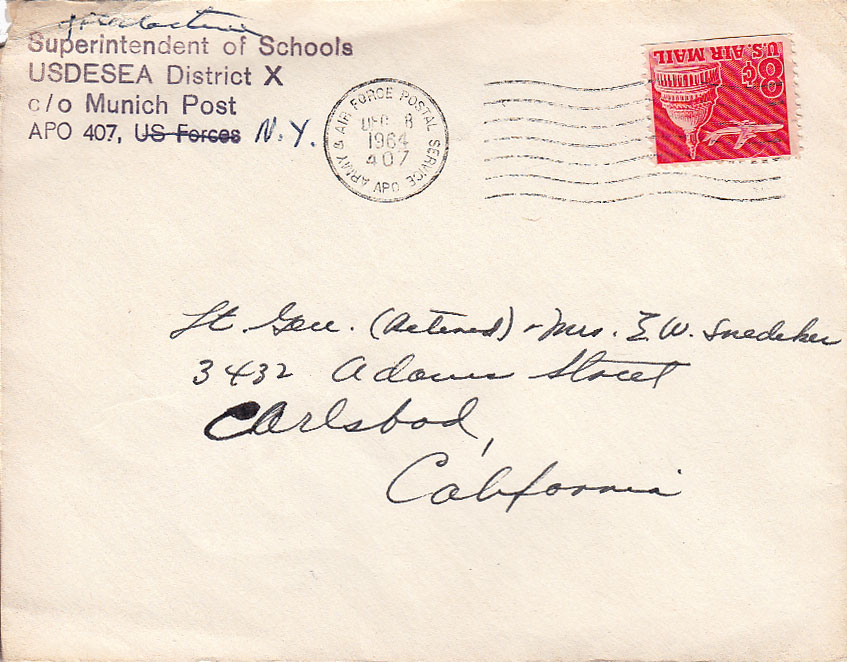 Superintendent of Schools
USDESEA District X
c/o Munich Post
APO 407, US Forces N.Y.
ARMY & AIR FORCE POSTAL SERVICE
DEC 8
1964
407
APO
8¢
U.S. AIR MAIL
Lt. Gen. (Retired) & Mrs. E. W. Snedeker
3432 Adams Street
Carlsbad,
California